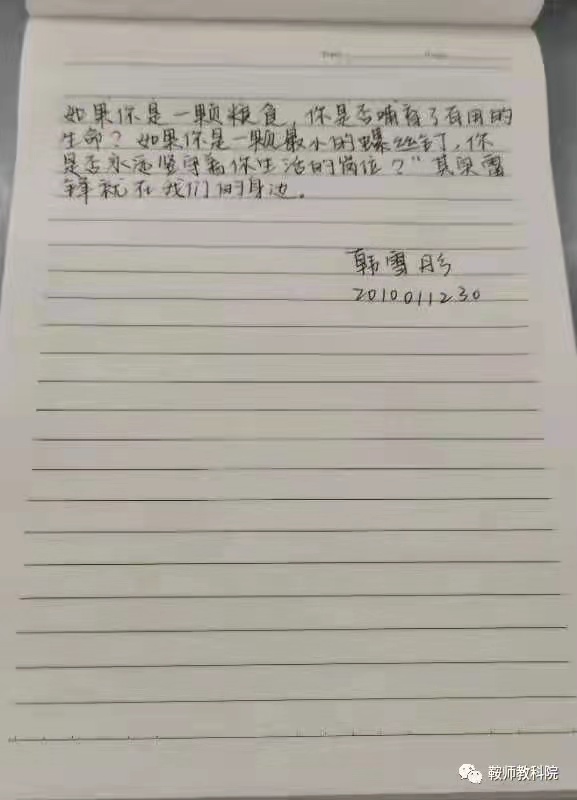 如果你是一颗粮食，你是否哺育了有用的
生命？如果你是一颗最小的螺丝钉，你
是否永远坚守着你生活的岗位？"其实雷
锋就在我们的身边。
韩雪彤
2010011230
鞍师教科院